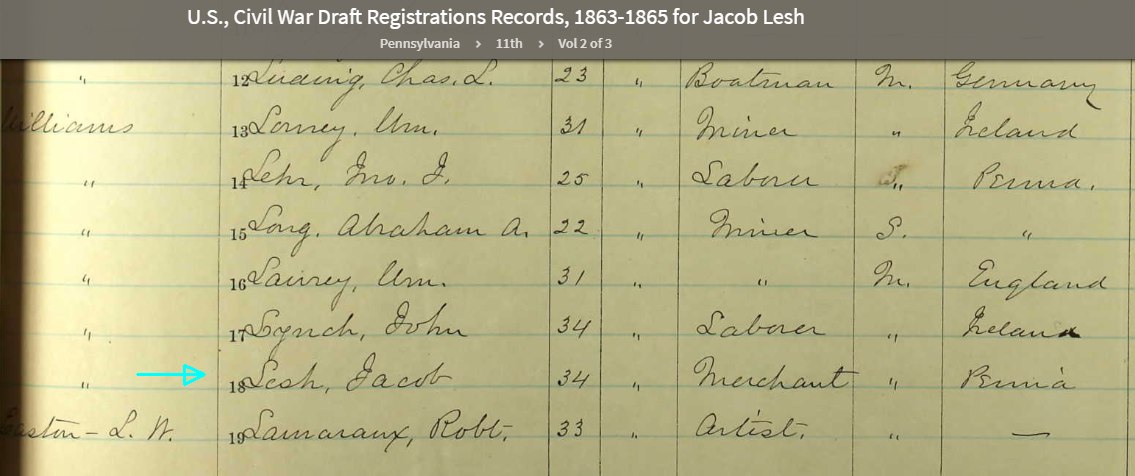 U.S., Civil War Draft Registrations Records, 1863-1865 for Jacob Lesh
Pennsylvania › 11th › Vol 2 of 3
" 12 Chas. L. 23 " Boatman M. Germany
Williams 13 Wm. 31 " Miner " Ireland
" 14 Lehr, Jno. J. 25 " Laborer " Penna.
" 15 Long, Abraham A. 22 " Miner S. "
" 16 Lawrey, Wm. 31 " " M. England
" 17 Lynch, John 34 " Laborer " Ireland
" 18 Lesh, Jacob 34 " Merchant " Penna
Easton - L. W. 19 Lamaraux, Robt. 33 " Artist. " —